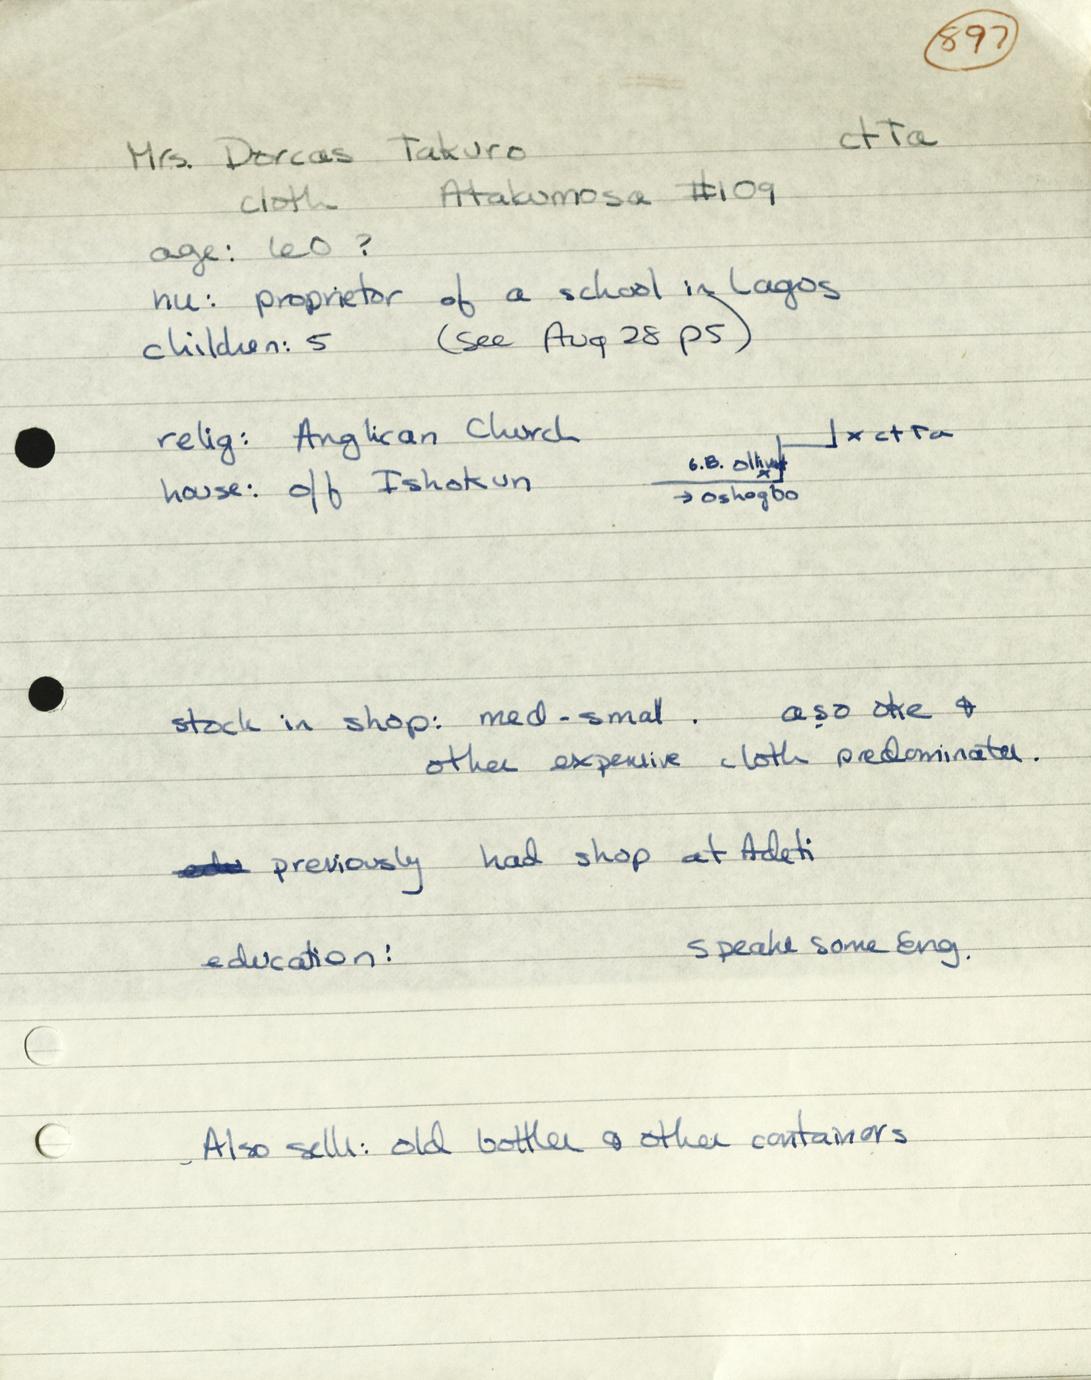 897
Mrs. Dorcas Takuro ctTa
cloth Atakumosa #109
age: 60 ?
hu: proprietor of a school in Lagos
children: 5 (see Aug 28 p5)
relig: Anglican Church x ctTa
house: off Ishokun G.B. x
→ Oshogbo
stock in shop: med-smal. aṣo oke &
other expensive cloth predominates.
previously had shop at Adeti
education: speaks some Eng.
Also sells: old bottles & other containors